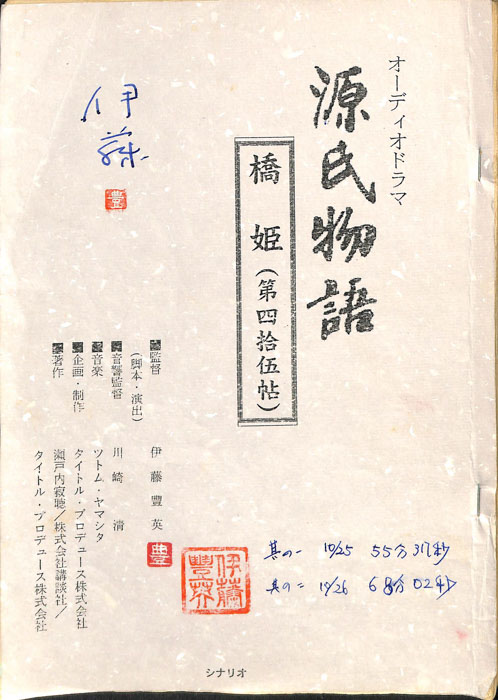 オーディオドラマ
源氏物語
橋姫(第四拾伍帖)
伊藤
豊
監督 伊藤豐英
(脚本・演出)
音響監督 川崎清
音楽 ツトム・ヤマシタ
企画・制作 タイトル・プロデュース株式会社
著作 瀬戸内寂聴/株式会社講談社/
タイトル・プロデュース株式会社
豊
伊藤豐英
其の一 10/25 55分31秒
其の二 10/26 68分02秒
シナリオ